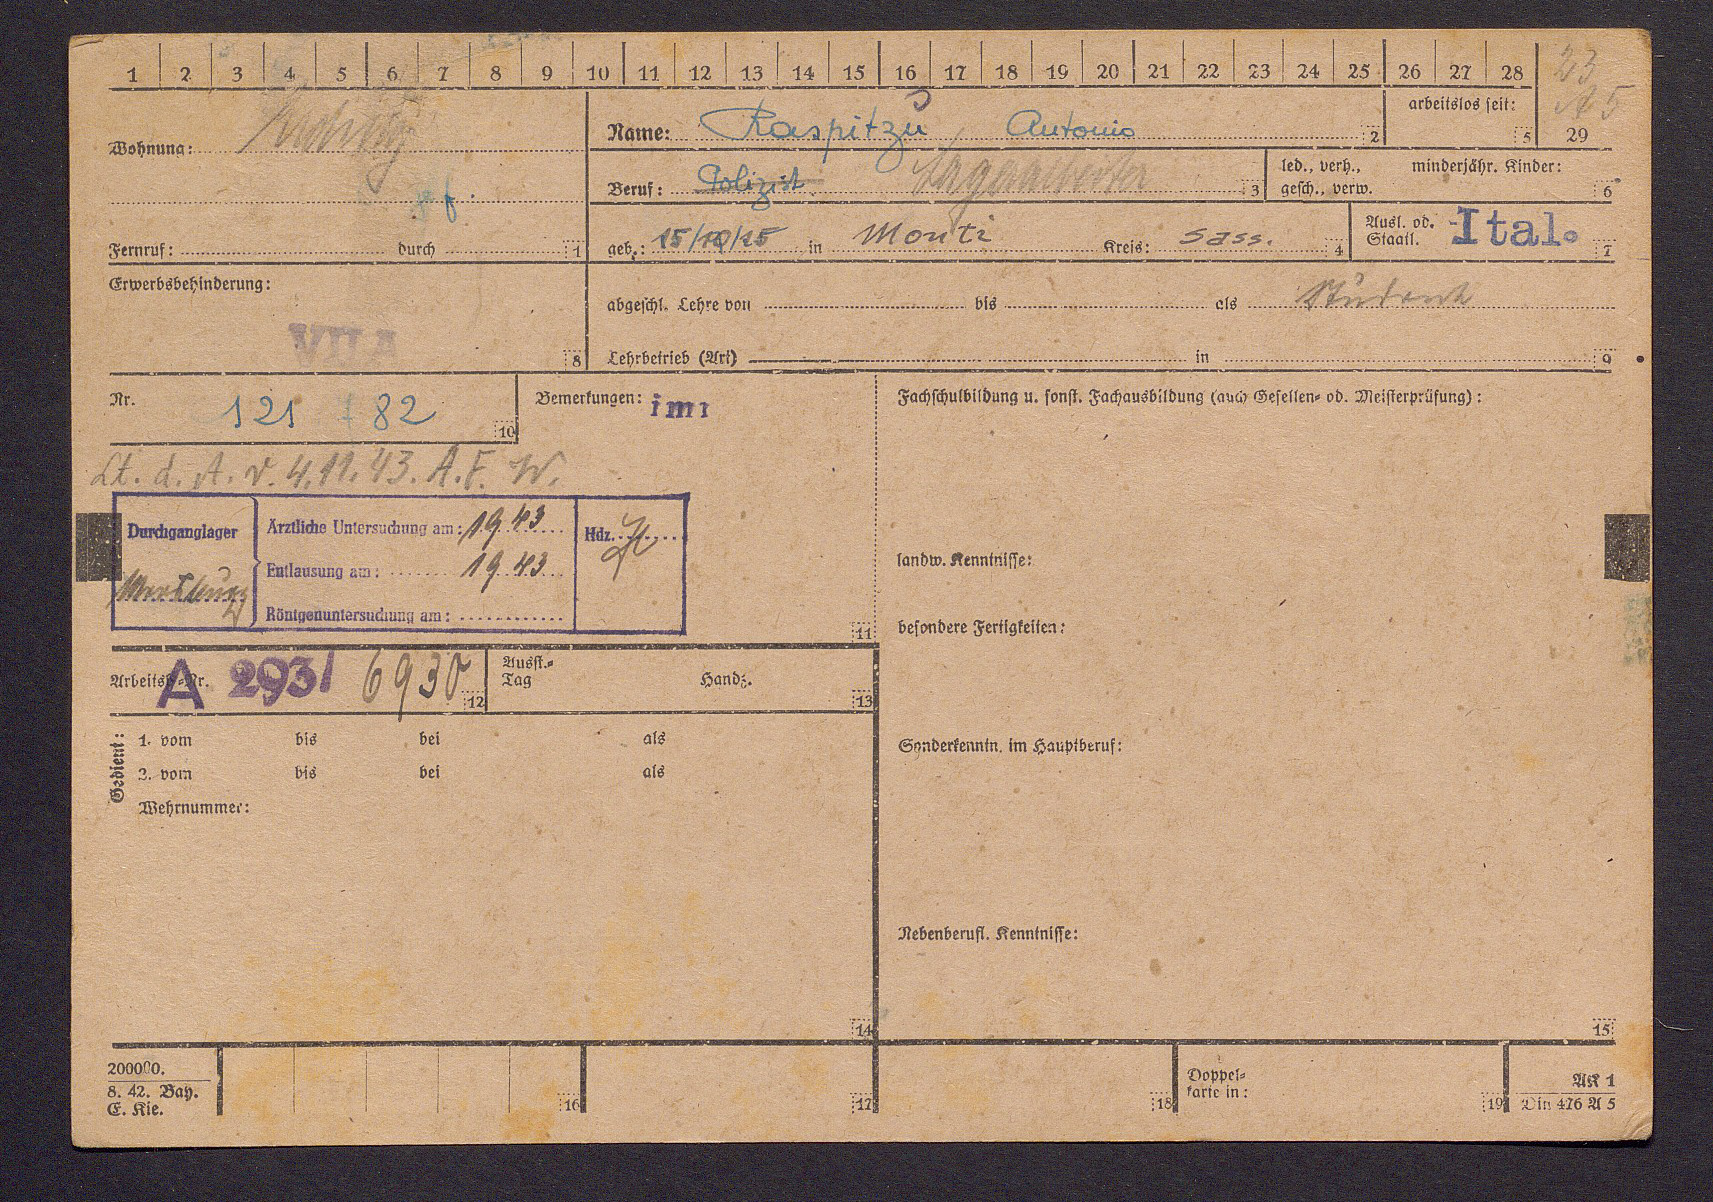 1 2 3 4 5 6 7 8 9 10 11 12 13 14 15 16 17 18 19 20 21 22 23 24 25 26 27 28 23
A 5
29
Wohnung:
Fernruf: durch 1
Name: Raspitzu, Antonio 2
arbeitslos seit: 5
Beruf: Polizist Lagerarbeiter 3
led., verh., gesch., verw. minderjähr. Kinder: 6
geb.: 15/10/25 in Monti Kreis: Sass. 4
Ausl. od. Staatl. Ital. 7
Erwerbsbehinderung:
VII A 8
abgeschl. Lehre von bis als Student
Lehrbetrieb (Art) in 9
Nr. 121 82 10
Bemerkungen: imi
Lt. d. A. v. 4.11.43. A.F. W.
Durchganglager
Ärztliche Untersuchung am: 19.43
Entlausung am: 19.43
Röntgenuntersuchung am:
Hdz.
11
Arbeitsb.-Nr. A 293/ 6930 12
Ausst.-Tag Handz. 13
Gedient:
1. vom bis bei als
2. vom bis bei als
Wehrnummer:
14
Fachschulbildung u. sonst. Fachausbildung (auch Gesellen- od. Meisterprüfung):
landw. Kenntnisse:
besondere Fertigkeiten:
Sonderkenntn. im Hauptberuf:
Nebenberufl. Kenntnisse:
15
200000.
8. 42. Bay.
E. Kie.
16 17 18
Doppel-
karte in: 19
AK 1
Din 476 A 5